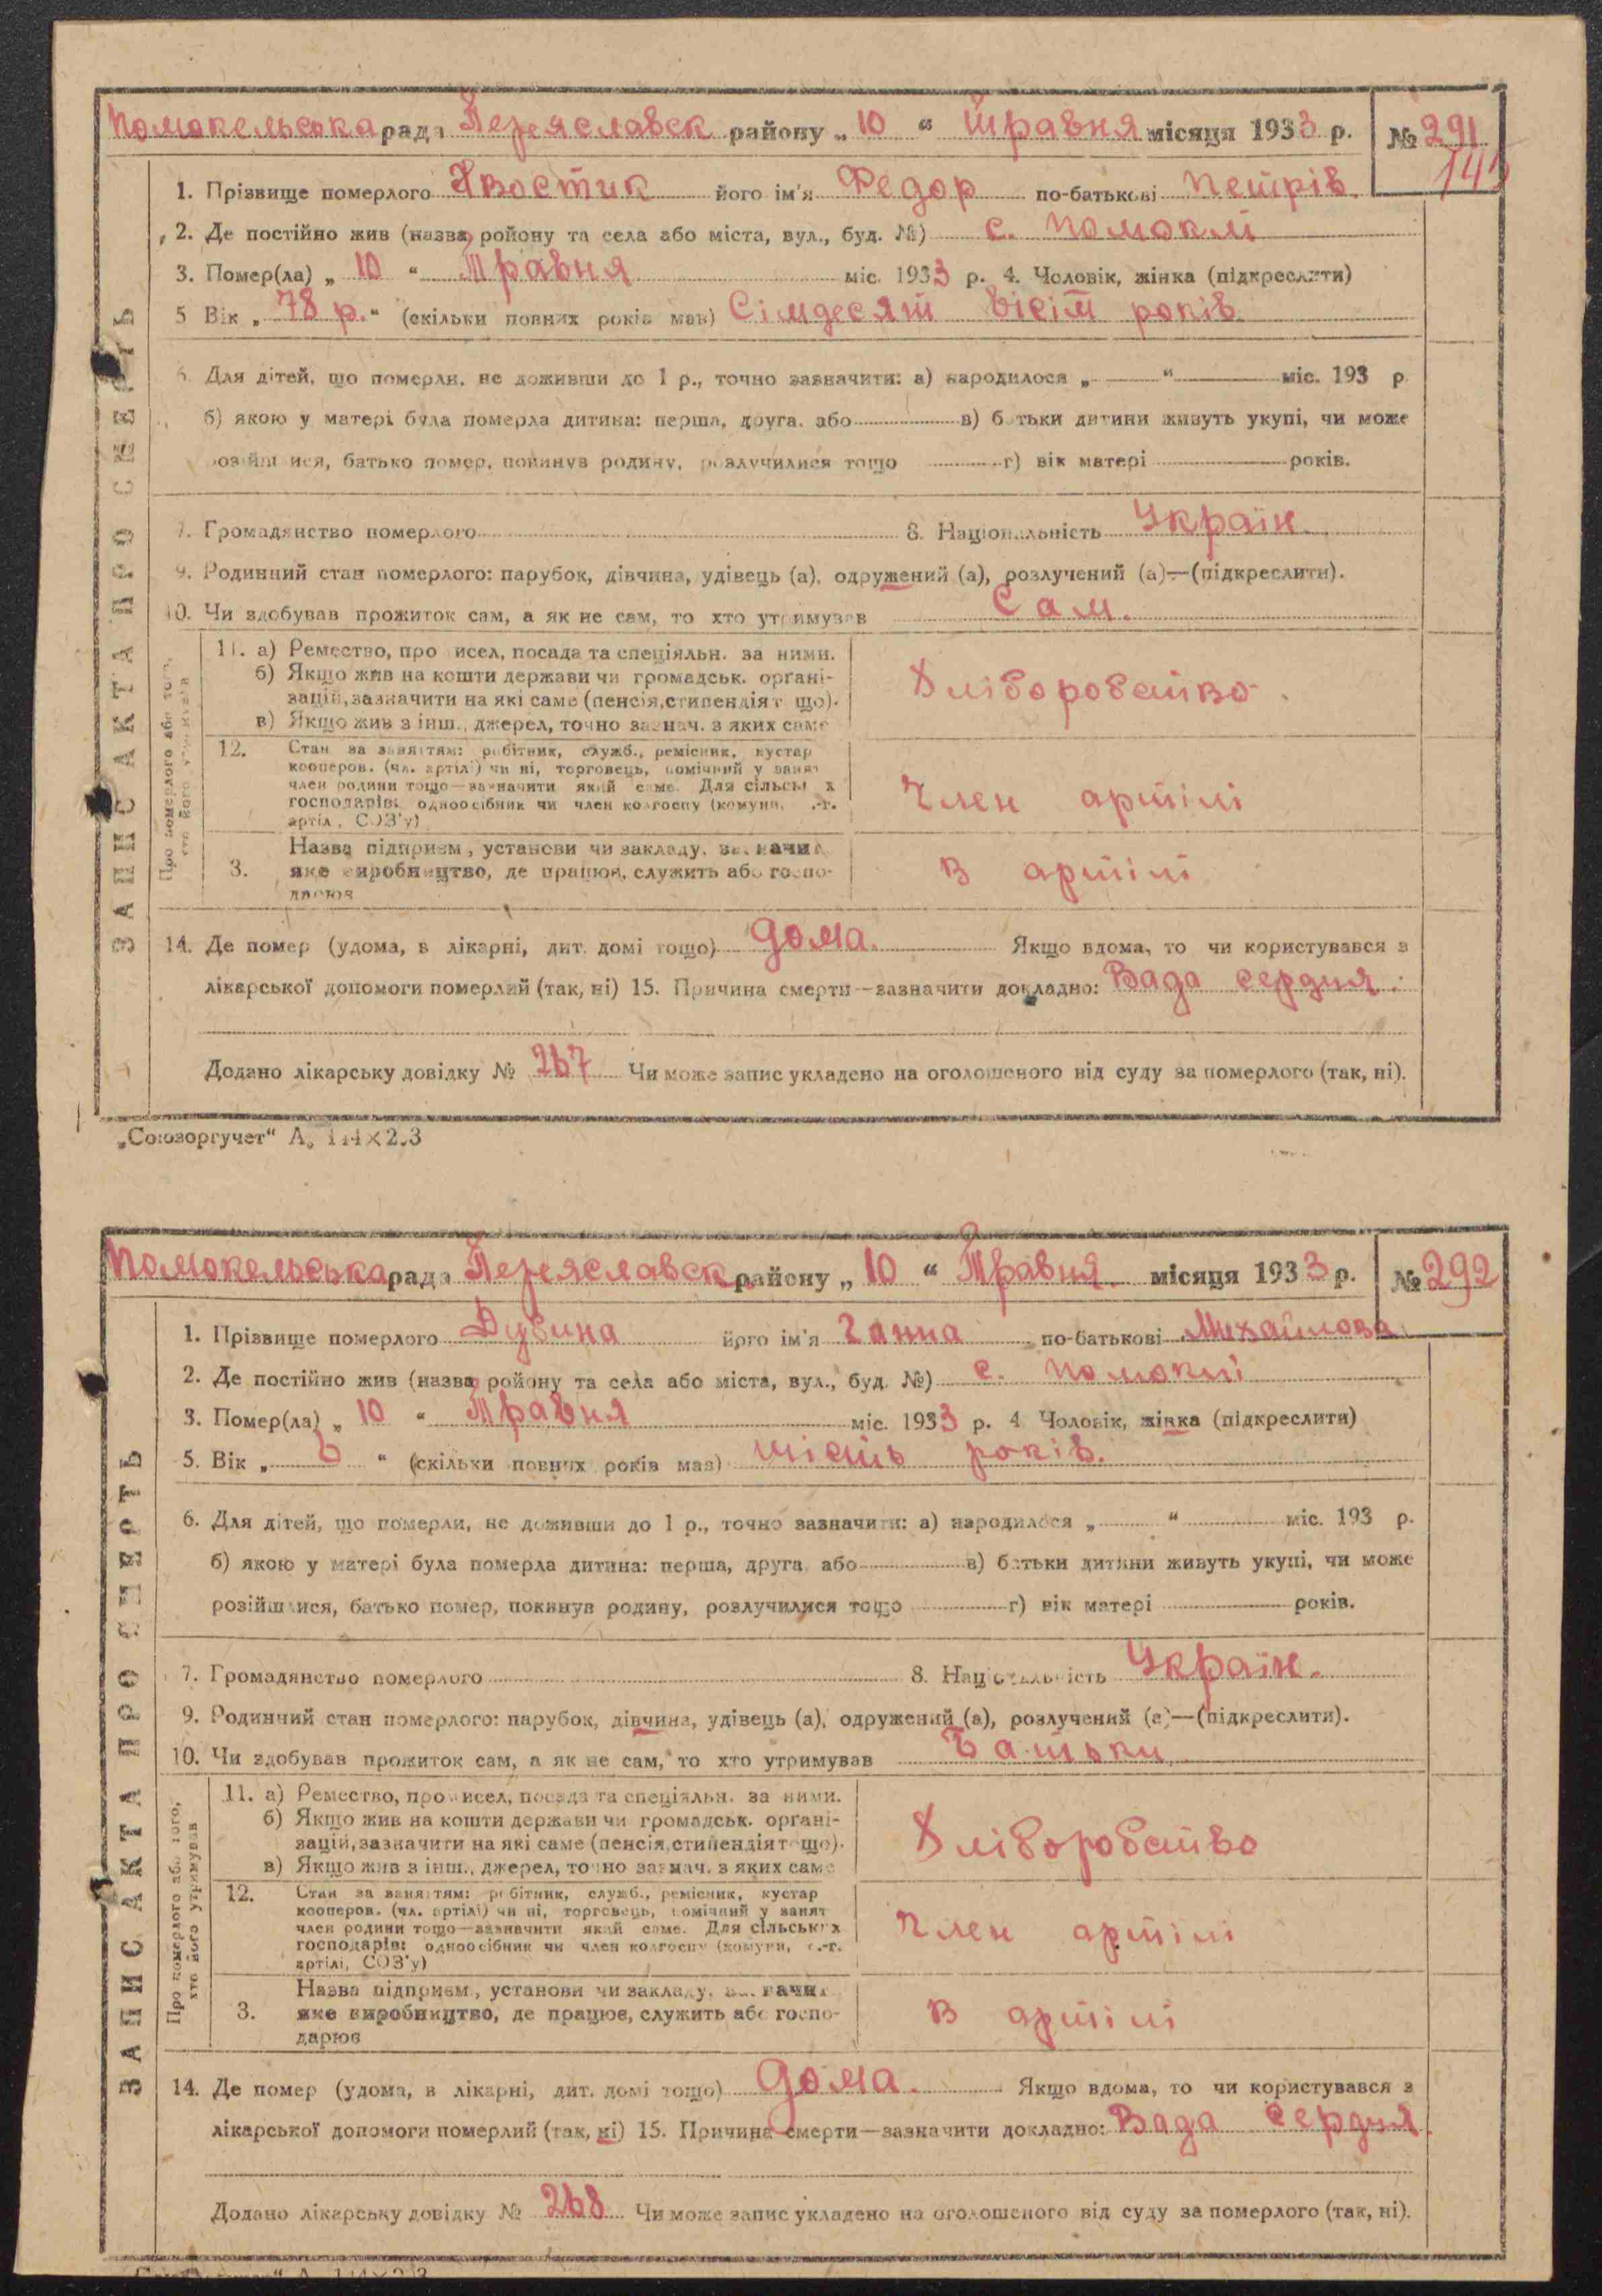 Помокельська рада Переяславск району „ 10 “ травня місяця 1933 р. № 291
1. Прізвище померлого Хвостик його ім'я Федор по-батькові Петрів.
2. Де постійно жив (назва ройону та села або міста, вул., буд. №) с. Помоклі
3. Помер(ла) „ 10 “ Травня міс. 1933 р. 4. Чоловік, жінка (підкреслити)
5 Вік „ 78 р. “ (скільки повних років мав) Сімдесят вісім років
6. Для дітей, що померли, не доживши до 1 р., точно зазначити: а) народилося „ “ міс. 193 р
б) якою у матері була померла дитина: перша, друга, або в) батьки дитини живуть укупі, чи може
розійшлися, батько помер, покинув родину, розлучилися тощо г) вік матері років.
7. Громадянство померлого 8. Національність Україн.
9. Родинний стан померлого: парубок, дівчина, удівець (а), одружений (а), розлучений (а)—(підкреслити).
10. Чи здобував прожиток сам, а як не сам, то хто утримував Сам.
ЗАПИС АКТА ПРО СМЕРТЬ
Про померлого або того,
хто його утримував
11. а) Ремество, промисел, посада та спеціяльн. за ними.
б) Якщо жив на кошти держави чи громадськ. органі-
зацій, зазначити на які саме (пенсія, стипендія тощо).
в) Якщо жив з інш., джерел, точно зазнач. з яких саме
Хліборобство
12. Стан за заняттям: робітник, служб., ремісник, кустар
кооперов. (чл. артілі) чи ні, торговець, помічний у занят
член родини тощо—зазначити який саме. Для сільських
господарів: одноосібник чи член колгоспу (комуни, с.-г.
артілі, СОЗ'у)
Член артілі
3. Назва підприєм., установи чи закладу, зазначит
яке виробництво, де працює, служить або госпо-
дарює
В артілі
14. Де помер (удома, в лікарні, дит. домі тощо) дома. Якщо вдома, то чи користувався з
лікарської допомоги померлий (так, ні) 15. Причина смерти—зазначити докладно: Вада сердця.
Додано лікарську довідку № 267 Чи може запис укладено на оголошеного від суду за померлого (так, ні).
„Союзоргучет“
Помокельська рада Переяславск району „ 10 “ Травня. місяця 1933 р. № 292
1. Прізвище померлого Дувина його ім'я Ганна по-батькові Михайлова
2. Де постійно жив (назва ройону та села або міста, вул., буд. №) с. Помоклі
3. Помер(ла) „ 10 “ Травня міс. 1933 р. 4 Чоловік, жінка (підкреслити)
5. Вік „ 6 “ (скільки повних років мав) шість років.
6. Для дітей, що померли, не доживши до 1 р., точно зазначити: а) народилося „ “ міс. 193 р.
б) якою у матері була померла дитина: перша, друга, або в) батьки дитини живуть укупі, чи може
розійшлися, батько помер, покинув родину, розлучилися тощо г) вік матері років.
7. Громадянство померлого 8. Національність Україн.
9. Родинний стан померлого: парубок, дівчина, удівець (а), одружений (а), розлучений (а)—(підкреслити).
10. Чи здобував прожиток сам, а як не сам, то хто утримував Батьки
ЗАПИС АКТА ПРО СМЕРТЬ
Про померлого або того,
хто його утримував
11. а) Ремество, промисел, посада та спеціяльн. за ними.
б) Якщо жив на кошти держави чи громадськ. органі-
зацій, зазначити на які саме (пенсія, стипендія тощо).
в) Якщо жив з інш., джерел, точно зазнач. з яких саме
Хліборобство
12. Стан за заняттям: робітник, служб., ремісник, кустар
кооперов. (чл. артілі) чи ні, торговець, помічний у занят
член родини тощо—зазначити який саме. Для сільських
господарів: одноосібник чи член колгоспу (комуни, с.-г.
артілі, СОЗ'у)
Член артілі
3. Назва підприєм., установи чи закладу, зазначит
яке виробництво, де працює, служить або госпо-
дарює
В артілі
14. Де помер (удома, в лікарні, дит. домі тощо) дома. Якщо вдома, то чи користувався з
лікарської допомоги померлий (так, ні) 15. Причина смерти—зазначити докладно: Вада сердця
Додано лікарську довідку № 268 Чи може запис укладено на оголошеного від суду за померлого (так, ні).